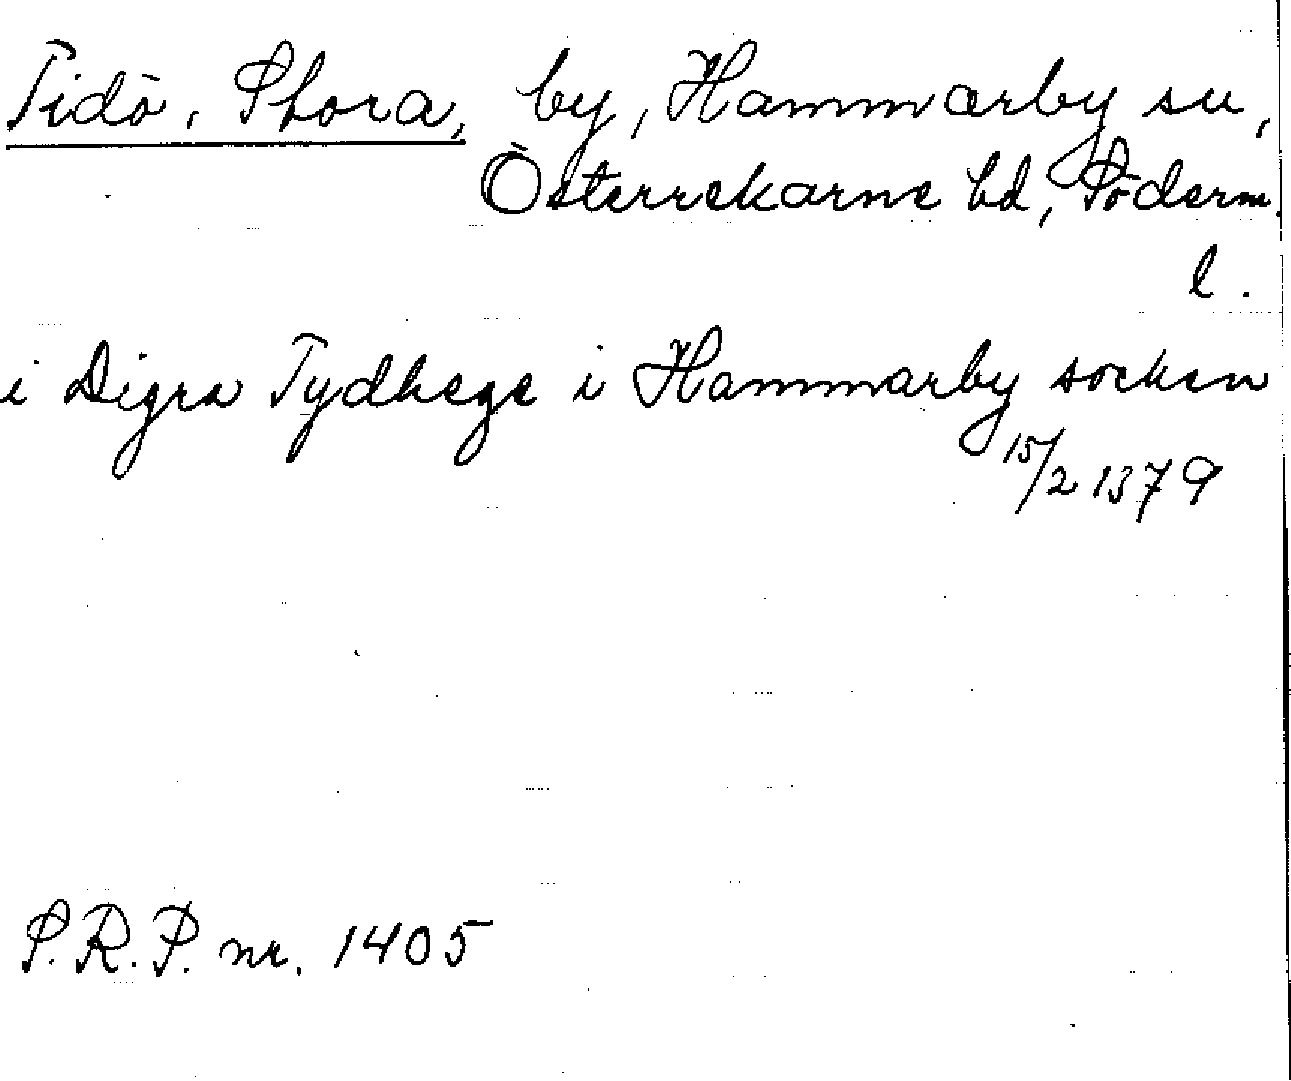 Tidö, Stora, by, Hammarby sn,
Österrekarne hd, Söderm.
l.
i Digra Tydhøge i Hammarby socken
15/2 1379
S.R.P. nr. 1405